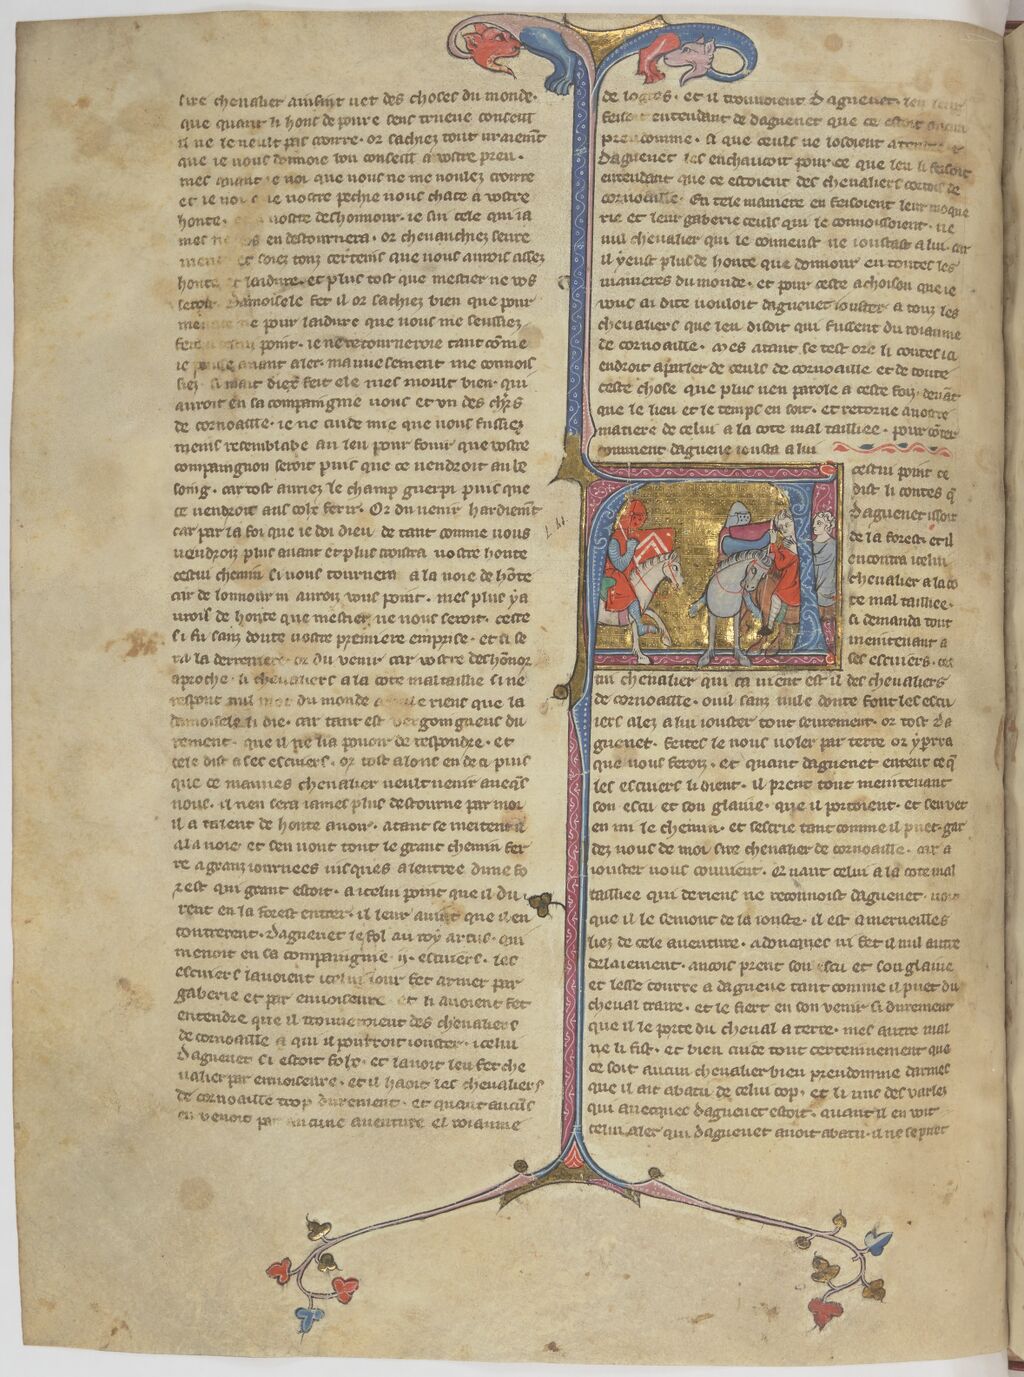 sire chevalier ainsint vet des choses du monde.
que quant li hons de povre sens trueve conseill
il ne le veult pas croirre. or sachez tout vraiemt
que ie vous donnoie bon conseill a vostre preu.
mes quant ie voi que vous ne me voulez croirre
et ie voi ie vostre pechie vous chace a vostre
honte. vostre deshonnour. ie sui cele qui ia
mes ne vos en destournera. or chevauchiez seure
ment et soiez touz certeins que vous aurois assez
honte et laidure. et plus tost que mestier ne vos
seroit. Damoisele fet il or sachiez bien que pour
ne pour laidure que vous me seussiez
point. ie ne retourneroie tant come
ie puisse avant aler. mauvesement me connois
siez si maint diex feit ele mes moult bien. qui
auroit en sa compaingnie vous et un des chrs
de cornoaille. ie ne cuide mie que vous fussiez
meins resemblable au leu pour fouir que vostre
compaingnon seroit puis que ce vendroit au be
soing. car tost auriez le champ guerpi puis que
ce vendroit aus cols ferir. Or du venir hardiemt
car par la foi que ie doi dieu de tant comme vous
vendrois plus avant et plus croistra vostre honte
cestui chemin si vous tournera a la voie de honte
car de lonnour ni aurois vous point. mes plus y a
vrois de honte que mestier ne vous seroit. ceste
si fu sanz doute vostre premiere emprise. et si se
ra la derreniere or du venir car vostre deshonor
aproche. li chevaliers a la cote mal taillie si ne
respont nul mot du monde a riens que la
damoisele li die. car tant est vergoingneus du
rement. que il ne lia pouoir de respondre. et
cele dist a ses escuiers. or tost alons en de ci puis
que ce mauves chevalier veult venir avecqs
nous. il nen sera iames plus destourne par moi
il a talent de honte avoir. atant se meitent
a la voie et sen vont tout le grant chemin fer
re a granz iournees iusques a lentree dune fo
rest qui grant estoit. a icelui point que il du
rent en la forest entrer. il leur avint que il en
contrerent. Daguenet le fol au roy artus. qui
menoit en sa compaingnie .ij. escuiers. les
escuiers lavoient icelui iour fet armer par
gaberie et par envoiseure et li avoient fet
entendre que il trouveroient des chevaliers
de cornoaille a qui il pourroit iouster. icelui
Daguenet si estoit folx. et lavoit leu fet che
valier par envoiseure. et il haoit les chevaliers
de cornoaille trop durement. et quant aucuns
en venoit par aucune aventure el roiaume
de logres. et il trouvoient Daguenet. len leur
entendant de daguenet que ce estoit aucun
preudomme. si que ceuls ne losoient
Daguenet les enchauçoit pour ce que leu li fesoit
entendant que ce estoient des chevaliers cortois de
cornoaille. En tele maniere en fesoient leur moque
rie et leur gaberie ceuls qui le connoissoient. ne
nul chevalier qui le conneust ne ioustast a lui. car
il yeust plus de honte que donnour en toutes les
manieres du monde. et pour ceste achoison que ie
vous ai dite vouloit daguenet iouster a touz les
chevaliers que leu disoit qui fussent du roiaume
de cornoaille. Mes atant se test ore li contes ici
endroit a parler de ceuls de cornoaille et de toute
ceste chose que plus nen parole a ceste foiz. devant
que le lieu et le temps en soit. et retorne a nostre
matiere de celui a la cote mal tailliee. pour conter
comment daguene iousta a lui
A cestui point ce
dist li contes q
Daguenet issoit
de la forest. et il
encontra icelui
chevalier a la co
te mal tailliee.
si demanda tout
meintenant a
ses escuiers. ces
tui chevalier qui ca vient est il des chevaliers
de cornoaille. ouil sanz nule doute font les escu
iers alez a lui iouster tout seurement. or tost Da
guenet. feites le nous voler par terre or yperra
que vous ferois. et quant daguenet entent ce q
les escuiers li dient. il prent tout meintenant
son escu et son glaive. que il portoient. et sen vet
en mi le chemin. et sescrie tant comme il puet. gar
dez vous de moi sire chevalier de cornoaille. car a
iouster vous couvient. Et quant celui a la cote mal
tailliee qui de riens ne reconnoist daguenet. voit
que il le semont de la iouste. il est a merveilles
liez de cele aventure. adoncques ni fet il nul autre
delaiement. ancois prent son escu et son glaive
et lesse courre a daguene tant comme il puet du
cheval traire. et le fiert en son venir si durement
que il le porte du cheval a terre. mes autre mal
ne li fist. et bien cuide tout certeinnement que
ce soit aucun chevalier bien preudomme darmes
que il ait abatu de celui cop. et li uns des varles
qui avecques daguenet estoit. quant il en voit
celui aler qui daguenet avoit abatu. il ne se puet